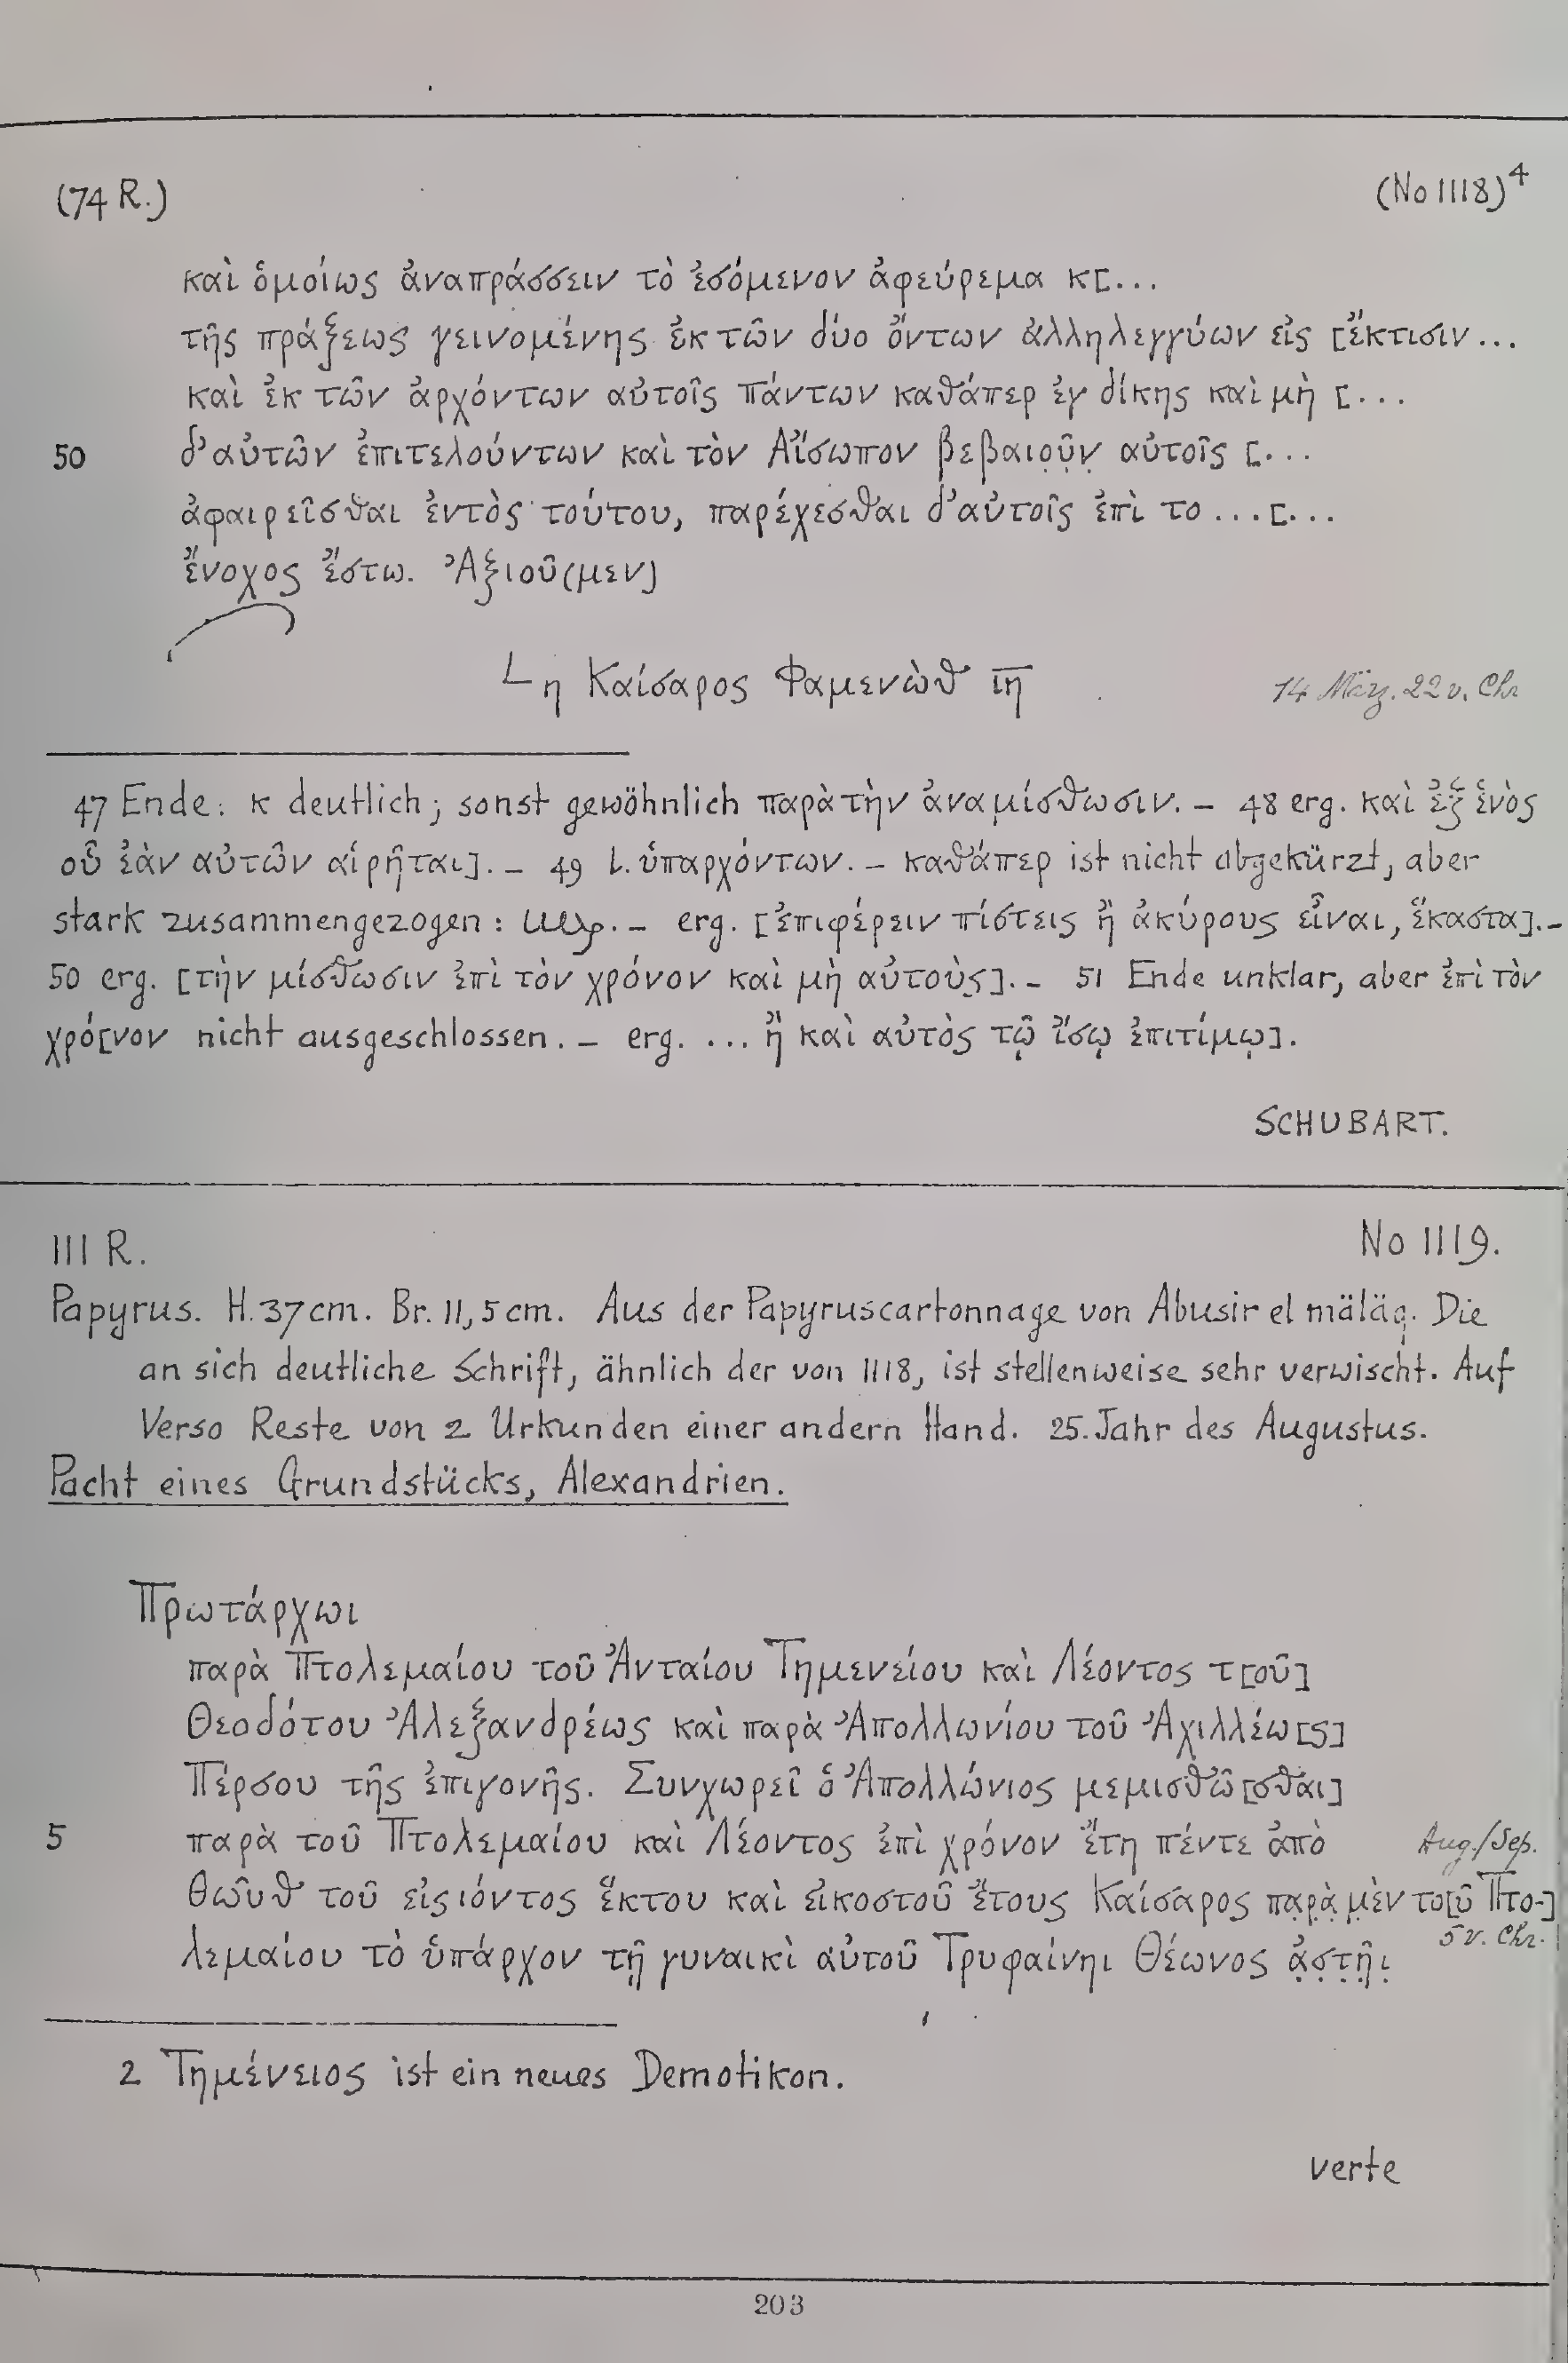 (74 R.)
(No 1118)⁴
καὶ ὁμοίως ἀναπράσσειν τὸ ἐσόμενον ἀφεύρεμα κ[...
τῆς πράξεως γεινομένης ἐκ τῶν δύο ὄντων ἀλληλεγγύων εἰς [ἔκτισιν...
καὶ ἐκ τῶν ἀρχόντων αὐτοῖς πάντων καθάπερ ἐγ δίκης καὶ μὴ [...
50 δ'αὐτῶν ἐπιτελούντων καὶ τὸν Αἴσωπον βεβαιο̣ῦ̣ν̣ αὐτοῖς [...
ἀφαιρεῖσθαι ἐντὸς τούτου, παρέχεσθαι δ'αὐτοῖς ἐπὶ το ...[...
ἔνοχος ἔστω. Ἀξιοῦ(μεν)
L η Καίσαρος Φαμενὼθ ι̅η̅
14 März. 22 v. Chr
47 Ende: κ deutlich; sonst gewöhnlich παρὰ τὴν ἀναμίσθωσιν. – 48 erg. καὶ ἐξ ἑνὸς
οὗ ἐὰν αὐτῶν αἱρῆται]. – 49 l. ὑπαρχόντων. – καθάπερ ist nicht abgekürzt, aber
stark zusammengezogen: – erg. [ἐπιφέρειν πίστεις ἢ ἀκύρους εἶναι, ἕκαστα]. –
50 erg. [τὴν μίσθωσιν ἐπὶ τὸν χρόνον καὶ μὴ αὐτοὺς]. – 51 Ende unklar, aber ἐπὶ τὸν
χρό[νον nicht ausgeschlossen. – erg. ... ἢ καὶ αὐτὸς τῷ ἴσῳ ἐπιτίμῳ].
SCHUBART.
III R.
No 1119.
Papyrus. H. 37 cm. Br. 11,5 cm. Aus der Papyruscartonnage von Abusir el mäläq. Die
an sich deutliche Schrift, ähnlich der von 1118, ist stellenweise sehr verwischt. Auf
Verso Reste von 2 Urkunden einer andern Hand. 25. Jahr des Augustus.
Pacht eines Grundstücks, Alexandrien.
Πρωτάρχωι
παρὰ Πτολεμαίου τοῦ Ἀνταίου Τημενείου καὶ Λέοντος τ[οῦ]
Θεοδότου Ἀλεξανδρέως καὶ παρὰ Ἀπολλωνίου τοῦ Ἀχιλλέω[ς]
Πέρσου τῆς ἐπιγονῆς. Συνχωρεῖ ὁ Ἀπολλώνιος μεμισθῶ[σθαι]
5 παρὰ τοῦ Πτολεμαίου καὶ Λέοντος ἐπὶ χρόνον ἔτη πέντε ἀπὸ
Aug./Sep.
Θωῦθ τοῦ εἰσιόντος ἕκτου καὶ εἰκοστοῦ ἔτους Καίσαρος π̣α̣ρ̣ὰ̣ μ̣ὲν το[ῦ Πτο-]
5 v. Chr.
λεμαίου τὸ ὑπάρχον τῇ γυναικὶ αὐτοῦ Τρυφαίνηι Θέωνος ἀ̣σ̣τ̣ῆ̣ι̣
2 Τημένειος ist ein neues Demotikon.
verte
203